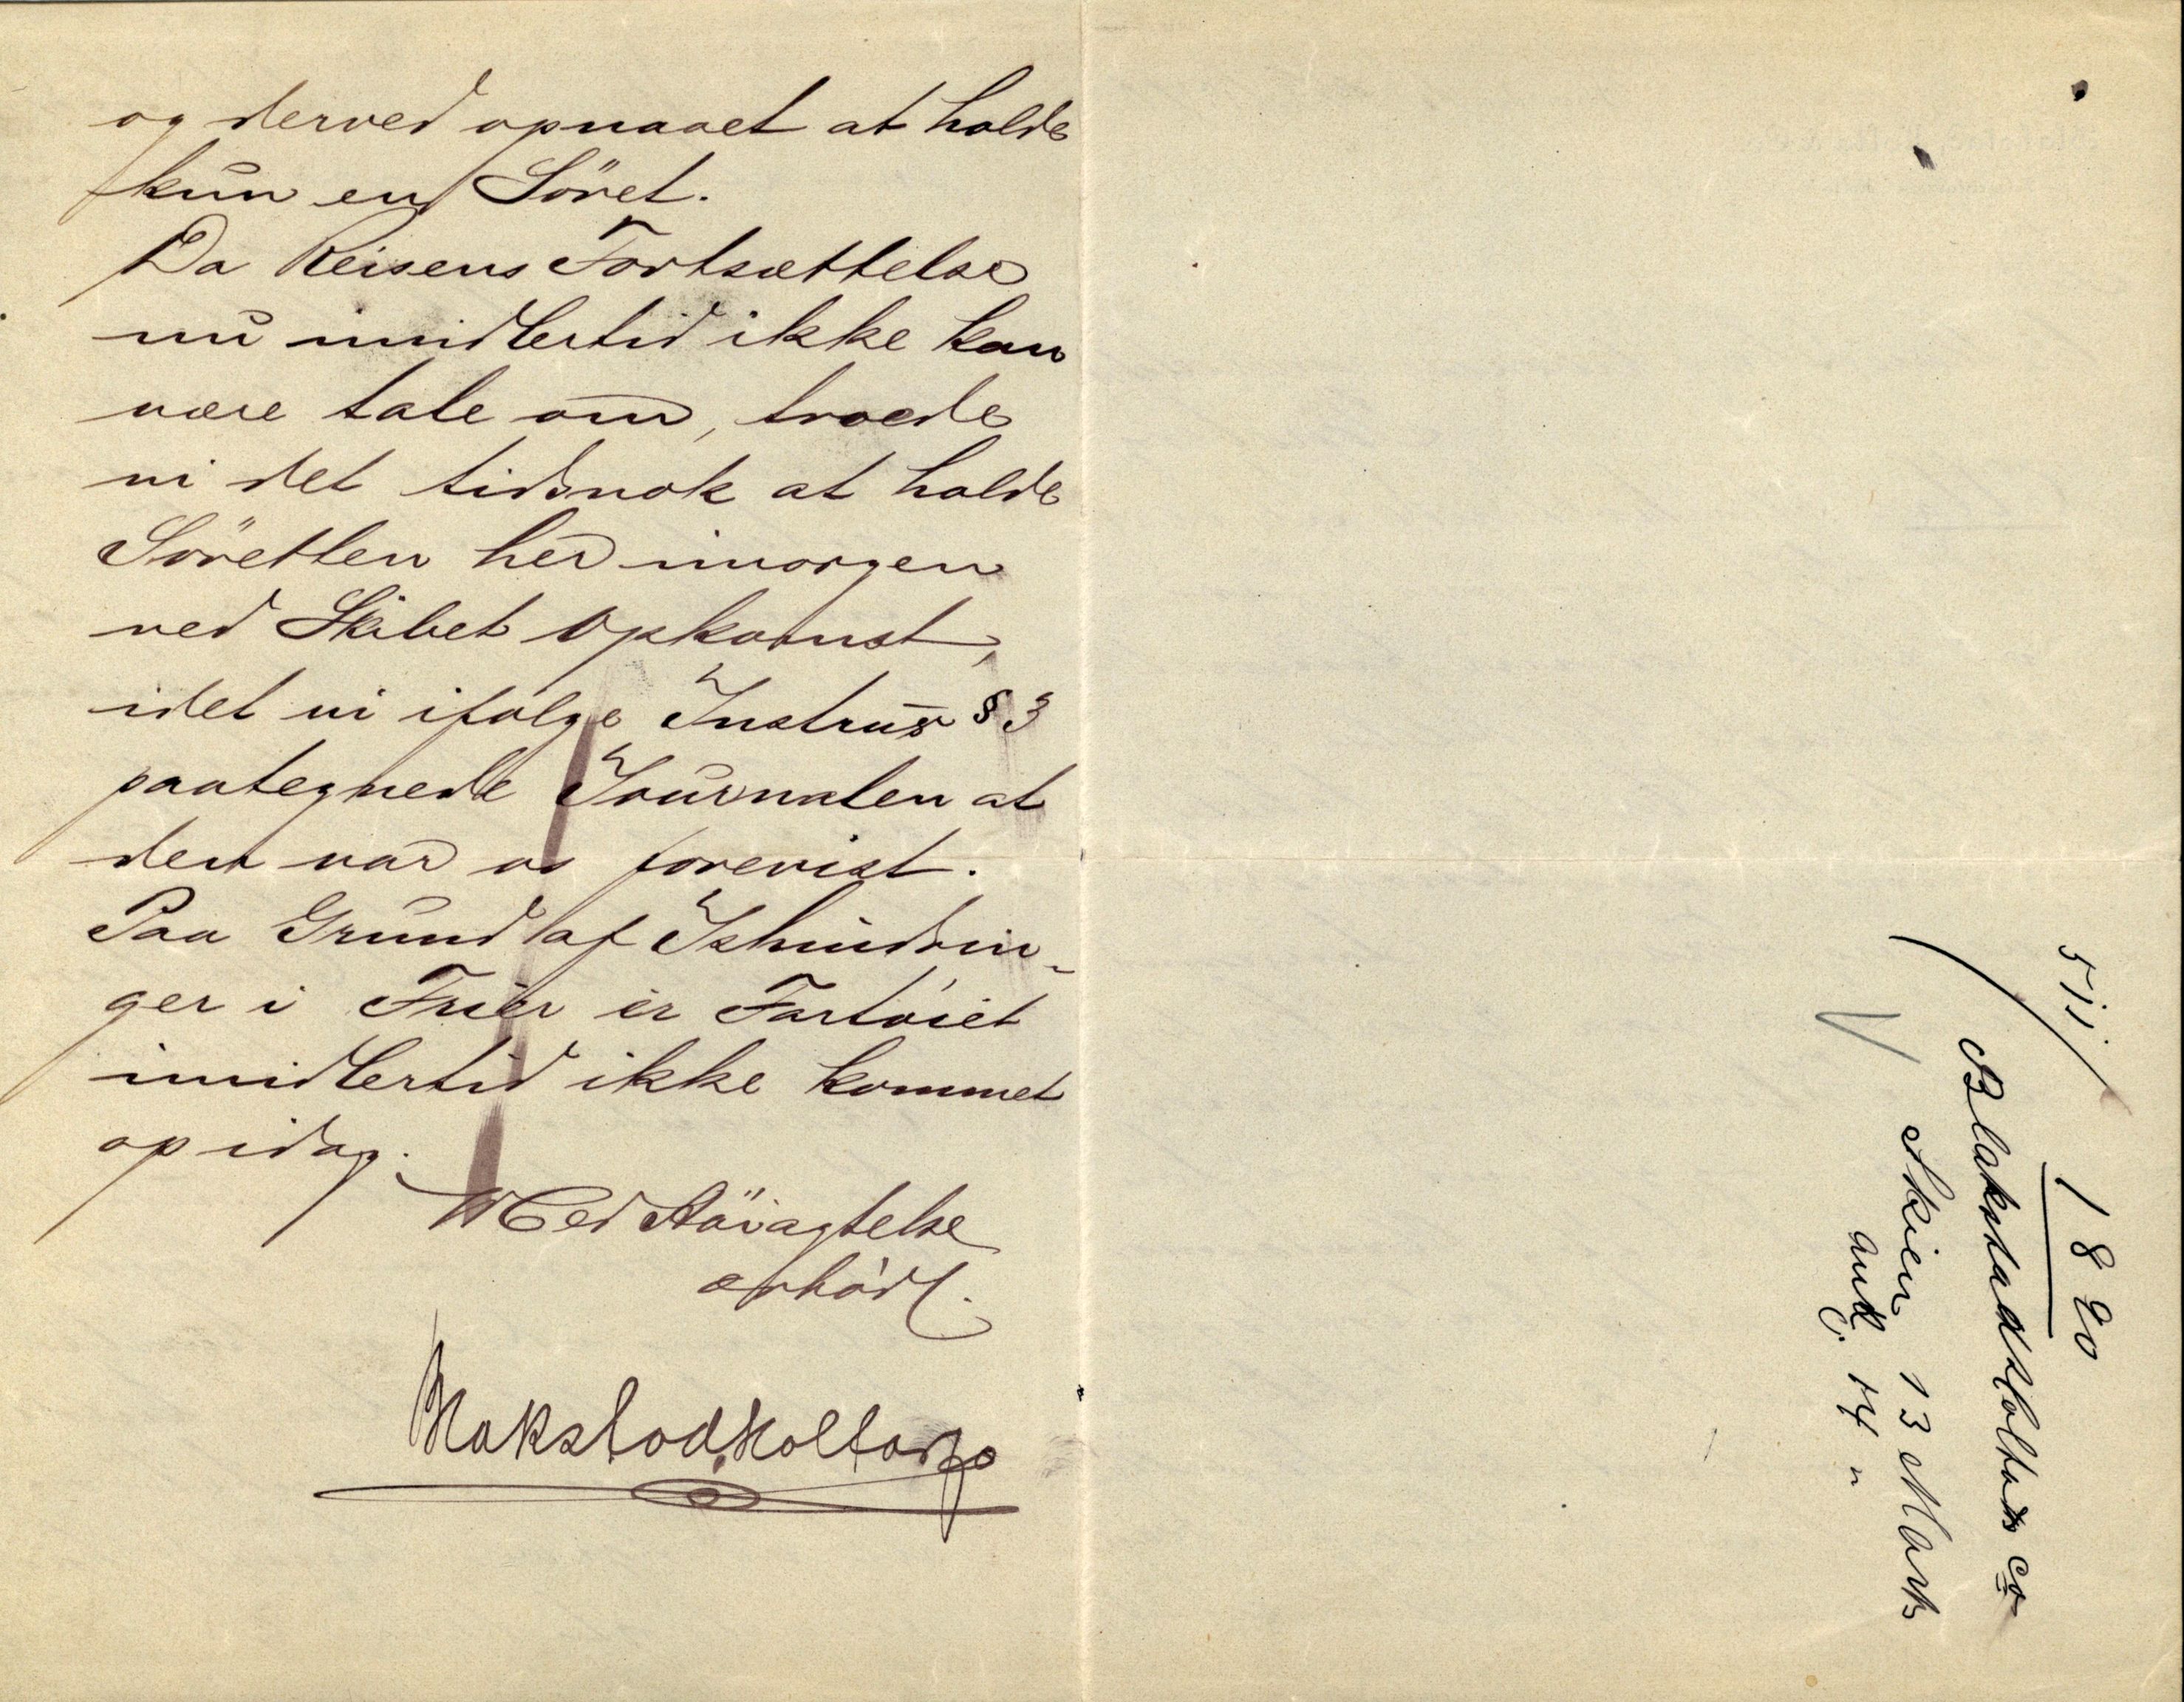 og derved opnaaet at holde
kun en Söret.
Da Reisens Fortsættelse
nu imidlertid ikke kan
være tale om, troede
vi det tidsnok at holde
Söretten her imorgen
ved Skibet Opkomst,
idet vi ifølge Instrux § 3
paategnede Journalen at
den var os forevist.
Paa Grund af Ishindrin-
ger i Frier er Fartóiet
imidlertid ikke kommet
op idag.
Med Höiagtelse
ærbód.
Blakstad Holta & Co
511/ 1890
Blakstad Holta & Co
Skien 13 Marts
ank. 14 "